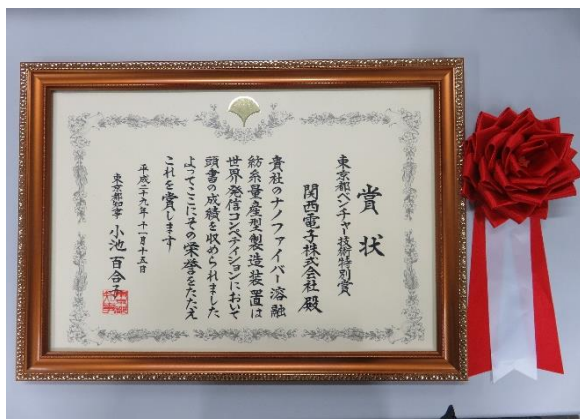 賞状
東京都ベンチャー技術特別賞
関西電子株式会社 殿
貴社のナノファイバー溶融
紡糸量産型製造装置は
世界発信コンペティションにおいて
頭書の成績を収められました
よってここにその栄誉をたたえ
これを賞します
平成二十九年十一月十五日
東京都知事 小池百合子